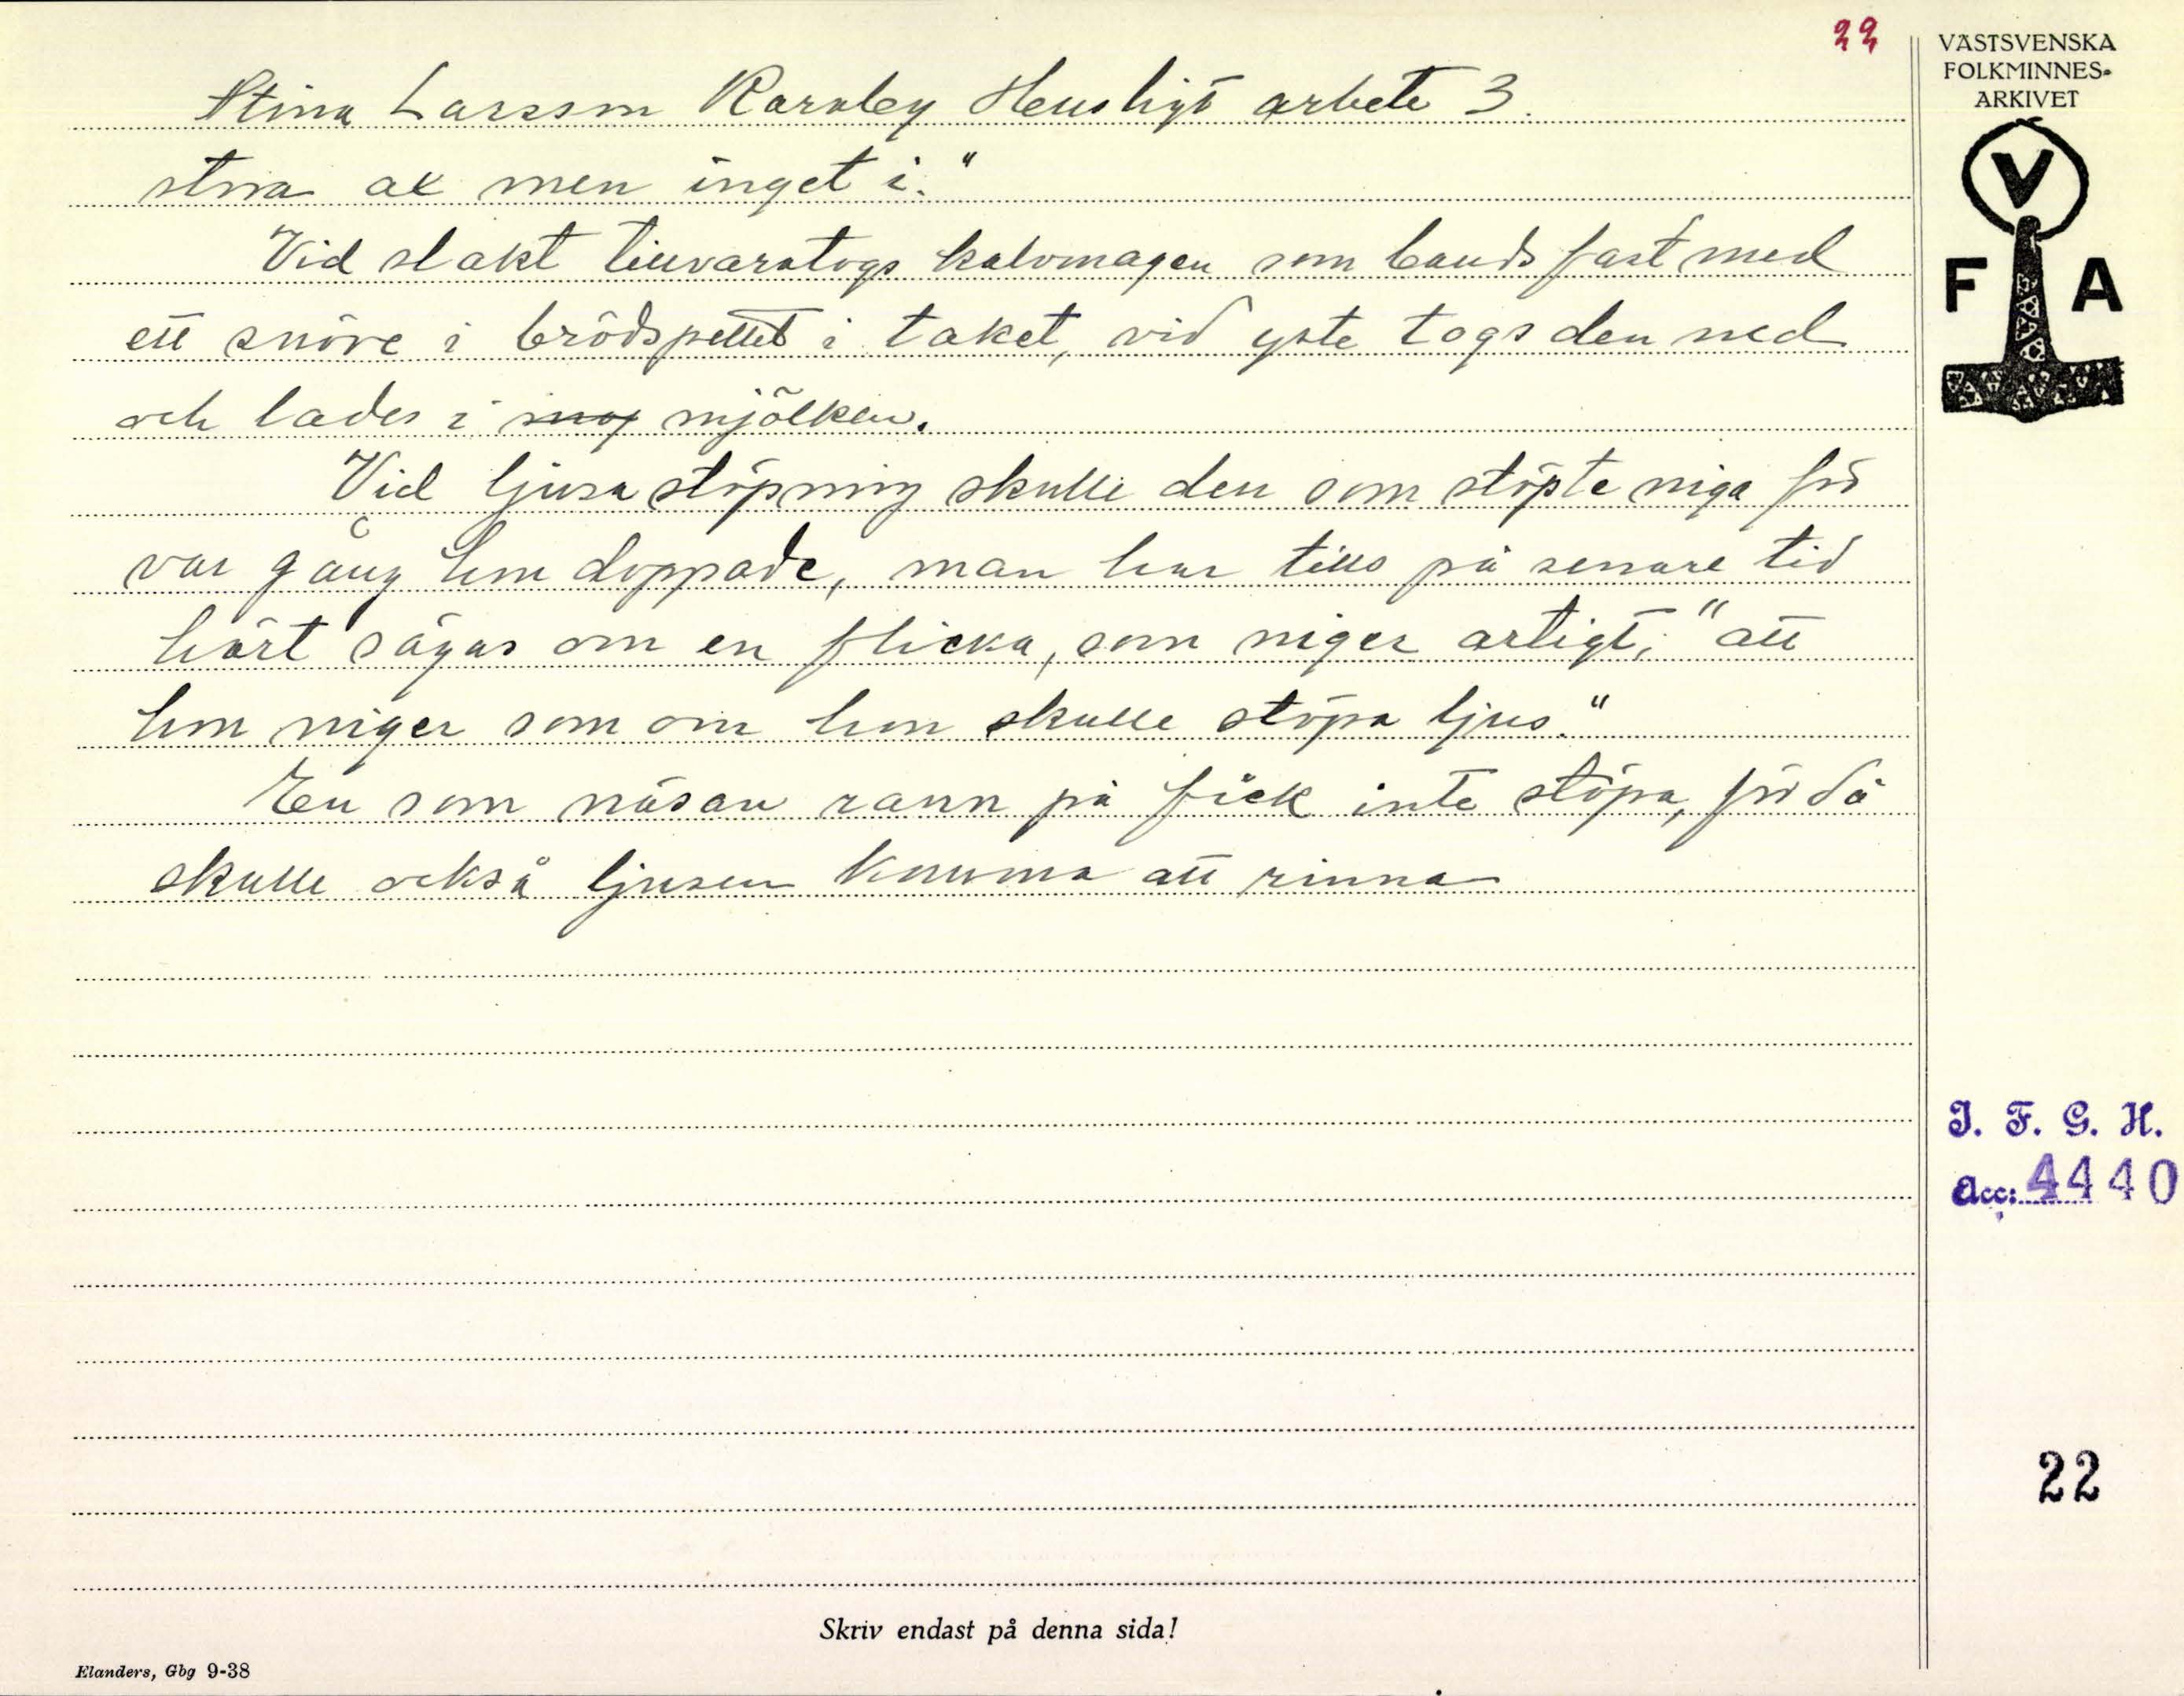 22
Stina Larsson Karaby Husligt arbete 3.
stora ax men inget i."
Vid slakt tillvaratogs kalvmagen som bands fast med
ett snöre i brödspettet i taket, vid yste togs den ned
och lades i mjölken.
Vid ljusastöpning skulle den som stöpte niga för
var gång hon doppade, man har tills på senare tid
hört sägas om en flicka, som niger artigt, "att
hon niger som om hon skulle stöpa ljus."
En som näsan rann på fick inte stöpa, för då
skulle också ljusen komma att rinna
VÄSTSVENSKA
FOLKMINNES-
ARKIVET
V
F A
I. F. G. H.
Acc: 4440
22
Skriv endast på denna sida!
Elanders, Gbg 9-38